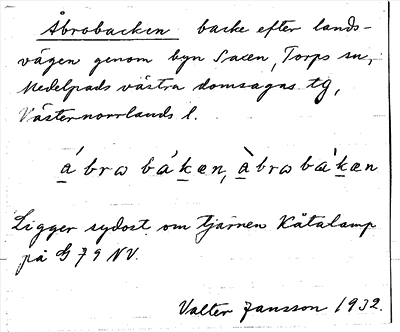 Åbrobacken backe efter lands-
vägen genom byn Saxen, Torps sn,
Medelpads västra domsagas tg,
Västernorrlands l.
ábrω báken, àbrωbàken
Ligger sydost om tjärnen Kåtalamp
på G 79 NV.
Valter Jansson 1932.